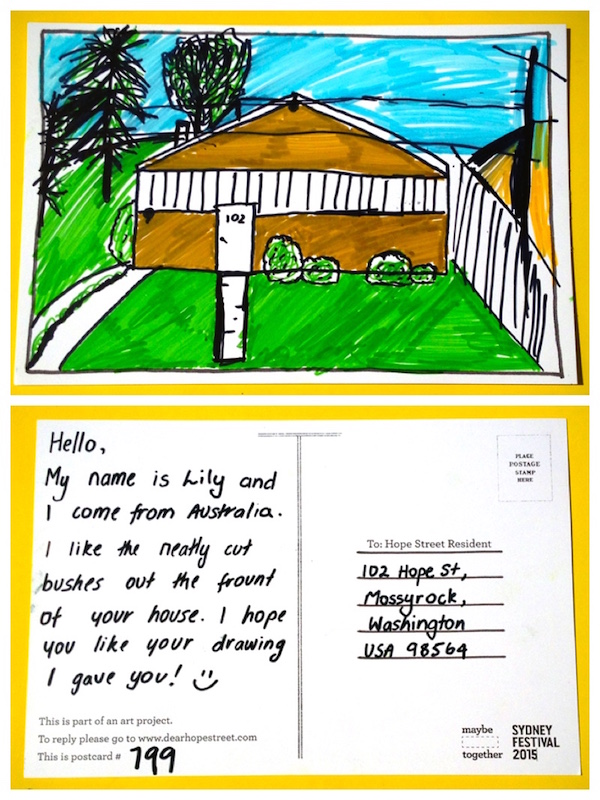 102
Hello,
My name is Lily and
I come from Australia.
I like the neatly cut
bushes out the frount
of your house. I hope
you like your drawing
I gave you!
This is part of an art project.
To reply please go to www.dearhopestreet.com
This is postcard # 799
PLACE
POSTAGE
STAMP
HERE
To: Hope Street Resident
102 Hope St,
Mossyrock,
Washington
USA 98564
maybe
together
SYDNEY
FESTIVAL
2015